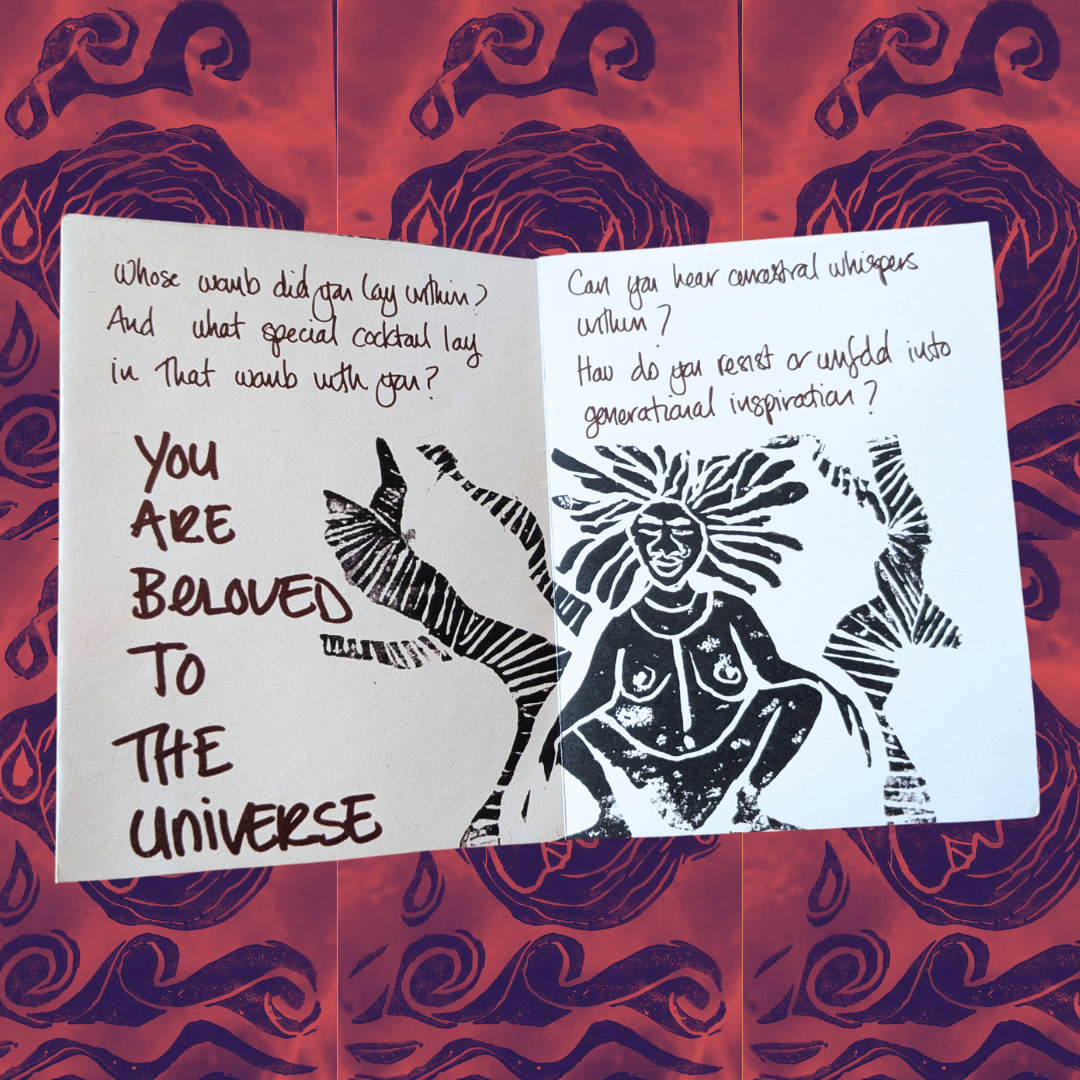 Whose womb did you lay within?
And what special cocktail lay
in that womb with you?
YOU
ARE
BELOVED
TO
THE
UNIVERSE
Can you hear ancestral whispers
within?
How do you resist or unfold into
generational inspiration?